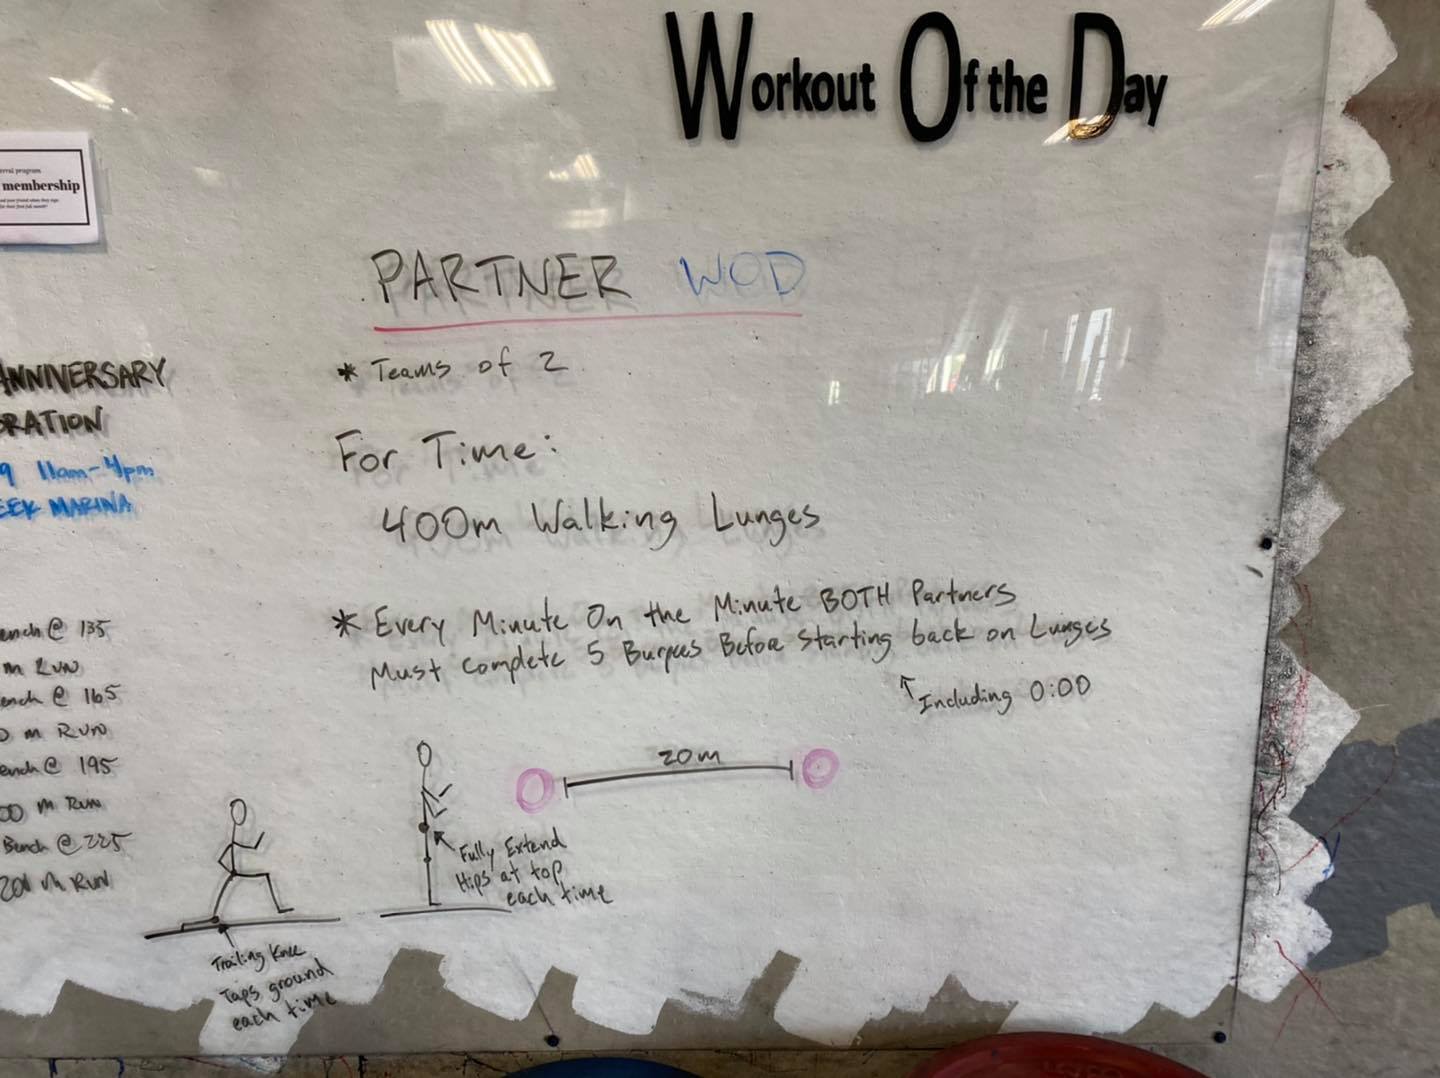 Workout Of the Day
membership
PARTNER WOD
* Teams of 2
For Time:
400m Walking Lunges
* Every Minute On the Minute BOTH Partners
Must Complete 5 Burpees Before Starting back on Lunges
Including 0:00
20m
Fully Extend
Hips at top
each time
Trailing Knee
Taps ground
each time
ANNIVERSARY
11am-4pm
MARINA
@ 135
m RUN
@ 165
m RUN
@ 195
m RUN
Bench @ 225
m RUN